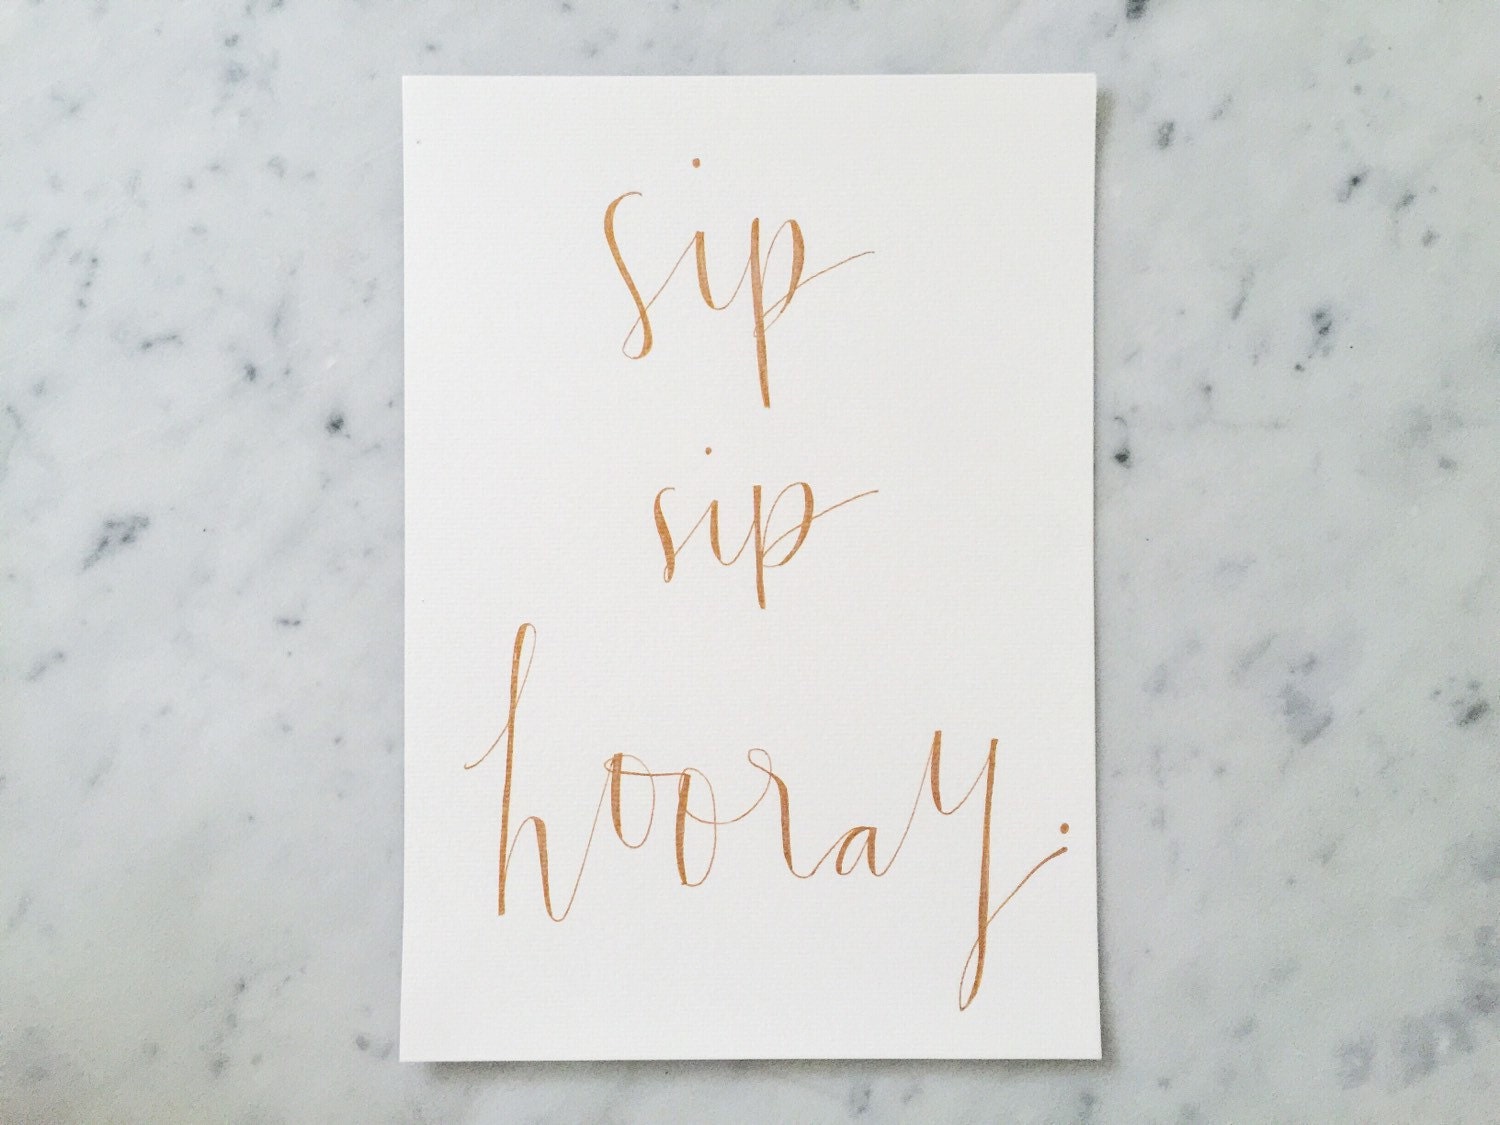 sip
sip
hooray.